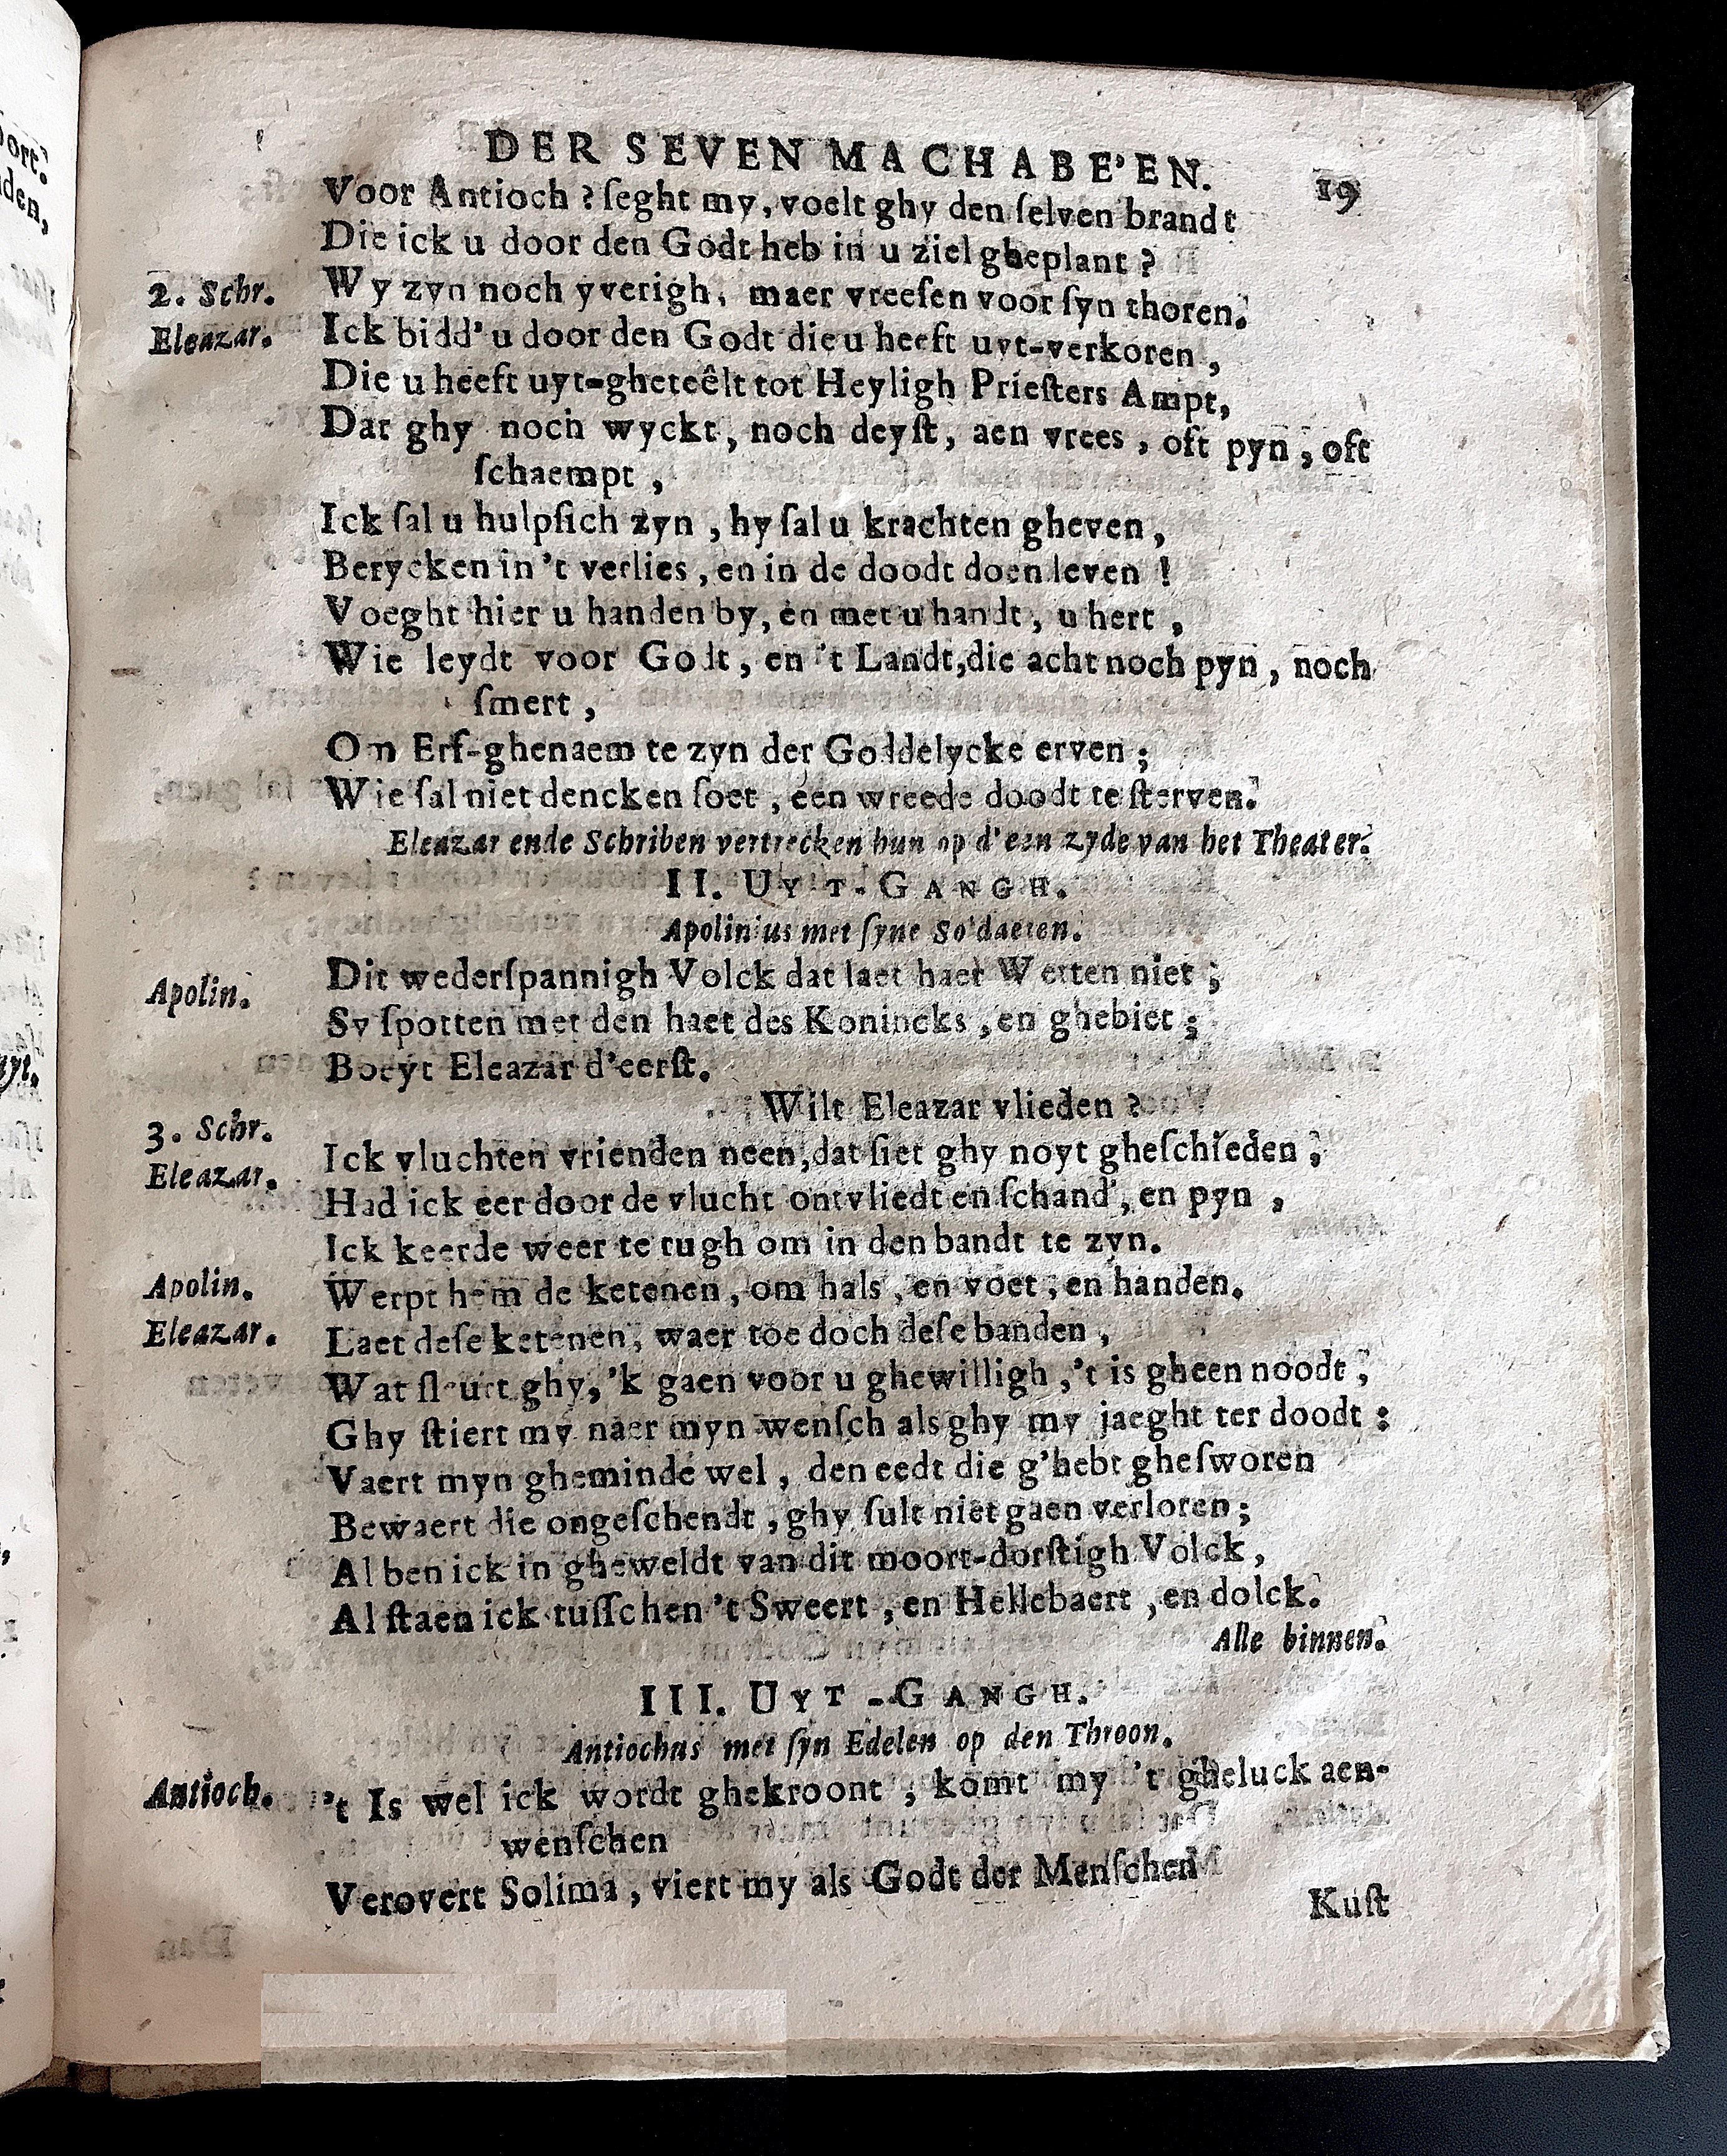 DER SEVEN MACHABE'EN. 19
Voor Antioch ? ſeght my, voelt ghy den ſelven brandt
Die ick u door den Godt heb in u ziel gheplant ?
2. Schr. Wy zyn noch yverigh, maer vreeſen voor ſyn thoren.
Eleazar. Ick bidd' u door den Godt die u heeft uyt-verkoren,
Die u heeft uyt-gheteêlt tot Heyligh Prieſters Ampt,
Dat ghy noch wyckt, noch deyſt, aen vrees, oft pyn, oft
ſchaempt,
Ick ſal u hulpſich zyn, hy ſal u krachten gheven,
Berycken in 't verlies, en in de doodt doen leven !
Voeght hier u handen by, en met u handt, u hert,
Wie leydt voor Godt, en 't Landt, die acht noch pyn, noch
ſmert,
Om Erf-ghenaem te zyn der Goddelycke erven;
Wie ſal niet dencken ſoet, een wreede doodt te ſterven.
Eleazar ende Schriben vertrecken hun op d'een zyde van het Theater.
II. UYT-GANGH.
Apolinius met ſyne Soldaeten.
Apolin. Dit wederſpannigh Volck dat laet haer Wetten niet;
Sy ſpotten met den haet des Konincks, en ghebiet;
Boeyt Eleazar d'eerſt.
3. Schr. Wilt Eleazar vlieden ?
Eleazar. Ick vluchten vrienden neen, dat ſiet ghy noyt gheſchieden;
Had ick eer door de vlucht ontvliedt en ſchand', en pyn,
Ick keerde weer te rugh om in den bandt te zyn.
Apolin. Werpt hem de ketenen, om hals, en voet, en handen.
Eleazar. Laet deſe ketenen, waer toe doch deſe banden,
Wat ſleurt ghy, 'k gaen voor u ghewilligh, 't is gheen noodt;
Ghy ſtiert my naer myn wenſch als ghy my jaeght ter doodt :
Vaert myn gheminde wel, den eedt die g'hebt gheſworen
Bewaert die ongeſchendt, ghy ſult niet gaen verloren;
Al ben ick in gheweldt van dit moort-dorſtigh Volck,
Al ſtaen ick tuſſchen 't Sweert, en Hellebaert, en dolck.
Alle binnen.
III. UYT-GANGH.
Antiochus met ſyn Edelen op den Throon.
Antioch. 't Is wel ick wordt ghekroont, komt my 't gheluck aen-
wenſchen
Verovert Solima, viert my als Godt der Menſchen
Kuſt